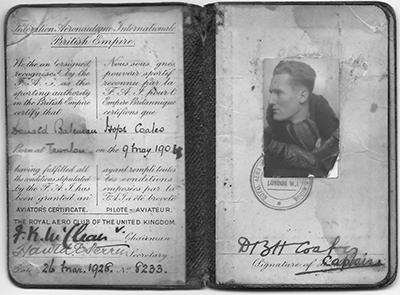 Fédération Aéronautique Internationale
British Empire
We the undersigned
recognised by the
F.A.I. as the
sporting authority
in the British Empire
certify that
Nous soussignés
pouvoir sportif
reconnu par la
F.A.I. pour l'
Empire Britannique
certifions que
Donald Bateman Hope Coales
Born at Taunton on the 9 May 1904
having fulfilled all
the conditions stipulated
by the F.A.I. has
been granted an
AVIATORS CERTIFICATE.
ayant rempli toutes
les conditions
imposées par la
F.A.I. a été breveté
PILOTE-AVIATEUR.
THE ROYAL AERO CLUB OF THE UNITED KINGDOM.
Chairman.
Harold E Perrin
Secretary.
Date 26 Mar. 1928. No 8233.
LONDON W.1
Signature of
Captain